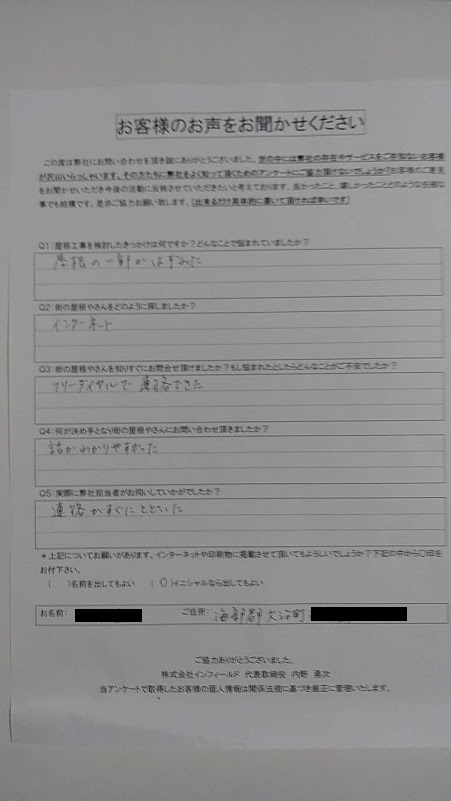 お客様のお声をお聞かせください
この度は弊社にお問い合わせを頂き誠にありがとうございました。世の中には弊社の存在やサービスをご存知ないお客様
が沢山いらっしゃいます。その方たちに弊社をよく知って頂くためのアンケートにご協力頂けないでしょうか?お客様のご意見
をお聞かせいただき今後の活動に反映させていただきたいと考えております。良かったこと、嬉しかったことどのような些細な
事でも結構です。是非ご協力お願い致します。(出来るだけ具体的に書いて頂ければ幸いです)
Q1:屋根工事を検討したきっかけは何ですか?どんなことで悩まれていましたか?
屋根の一部がはずれた
Q2:街の屋根やさんをどのように探しましたか?
インターネット
Q3:街の屋根やさんを知りすぐにお問合せ頂けましたか?もし悩まれたとしたらどんなことがご不安でしたか?
フリーダイヤルで連絡できた
Q4:何が決め手となり街の屋根やさんにお問い合わせ頂きましたか?
話がわかりやすかった
Q5:実際に弊社担当者がお伺いしていかがでしたか?
連絡がすぐにとどいた
*上記についてお願いがあります。インターネットや印刷物に掲載させて頂いてもよろしいでしょうか?下記の中から〇印を
お付下さい。
( )名前を出してもよい (〇)イニシャルなら出してもよい
お名前: ご住所: 海部郡大治町
ご協力ありがとうございました。
株式会社インフィールド 代表取締役 内野 勇次
当アンケートで取得したお客様の個人情報は関係法規に基づき厳正に管理いたします。